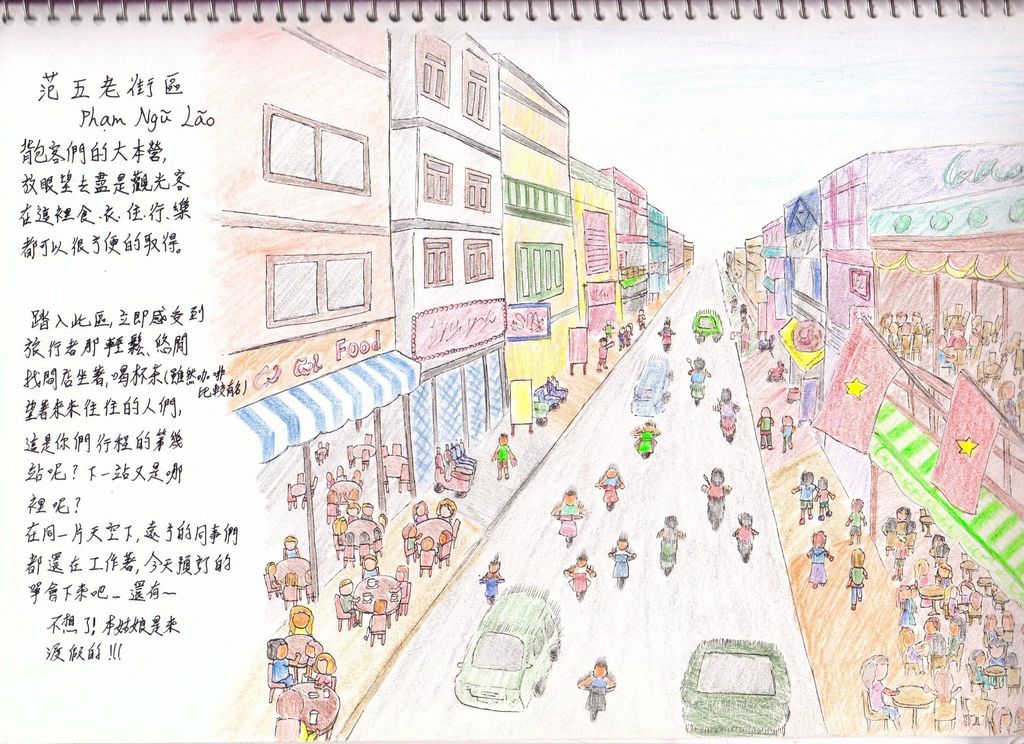 范五老街區
Phạm Ngũ Lão
背包客們的大本營,
放眼望去盡是觀光客
在這裡食、衣、住、行、樂
都可以很方便的取得。
踏入此區,立即感受到
旅行者那輕鬆、悠閒
找間店坐著,喝杯來(雖然咖啡
比較有名)
望著來來往往的人們,
這是你們行程的第幾
站呢?下一站又是哪
裡呢?
在同一片天空下,遠方的同事們
都還在工作著,今天預訂的
單會下來吧…還有~
不想了!本姑娘是來
渡假的!!!
Food